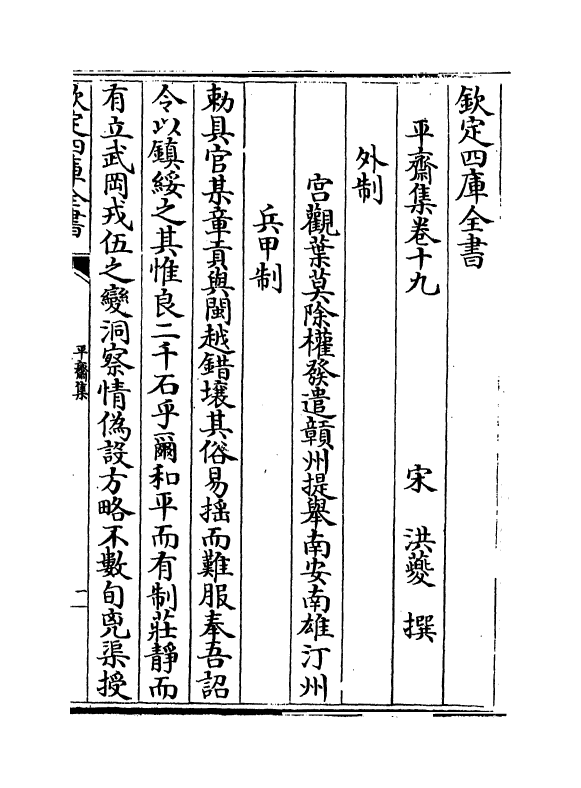 欽定四庫全書
平齋集卷十九
宋　洪夔　撰
外制
宮觀葉莫除權發遣贛州提舉南安南雄汀州
兵甲制
勅具官某章貢與閩越錯壤其俗易揺而難服奉吾詔
令以鎮綏之其惟良二千石乎爾和平而有制莊靜而
有立武岡戎伍之變洞察情偽設方略不數旬兇渠授
欽定四庫全書
平齋集
二